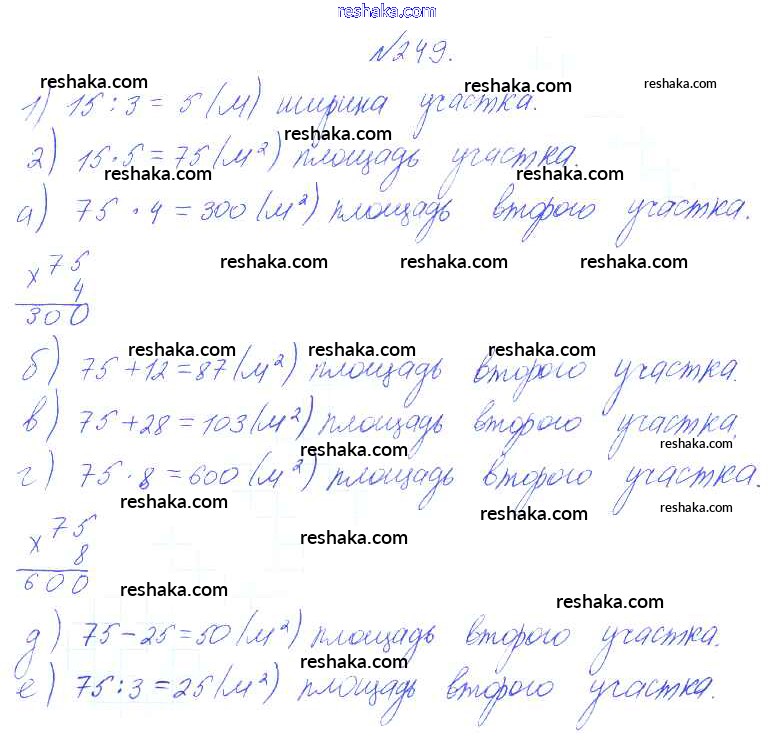 reshaka.com
№249.
reshaka.com reshaka.com reshaka.com reshaka.com
1) 15 : 3 = 5 (м) ширина участка.
reshaka.com
2) 15 · 5 = 75 (м²) площадь участка.
reshaka.com reshaka.com
а) 75 · 4 = 300 (м²) площадь второго участка.
reshaka.com reshaka.com reshaka.com
× 75
4
300
reshaka.com reshaka.com reshaka.com
б) 75 + 12 = 87 (м²) площадь второго участка.
в) 75 + 28 = 103 (м²) площадь второго участка.
reshaka.com reshaka.com
г) 75 · 8 = 600 (м²) площадь второго участка.
reshaka.com reshaka.com
× 75
8
600
reshaka.com reshaka.com
reshaka.com reshaka.com
д) 75 - 25 = 50 (м²) площадь второго участка.
reshaka.com reshaka.com
е) 75 : 3 = 25 (м²) площадь второго участка.